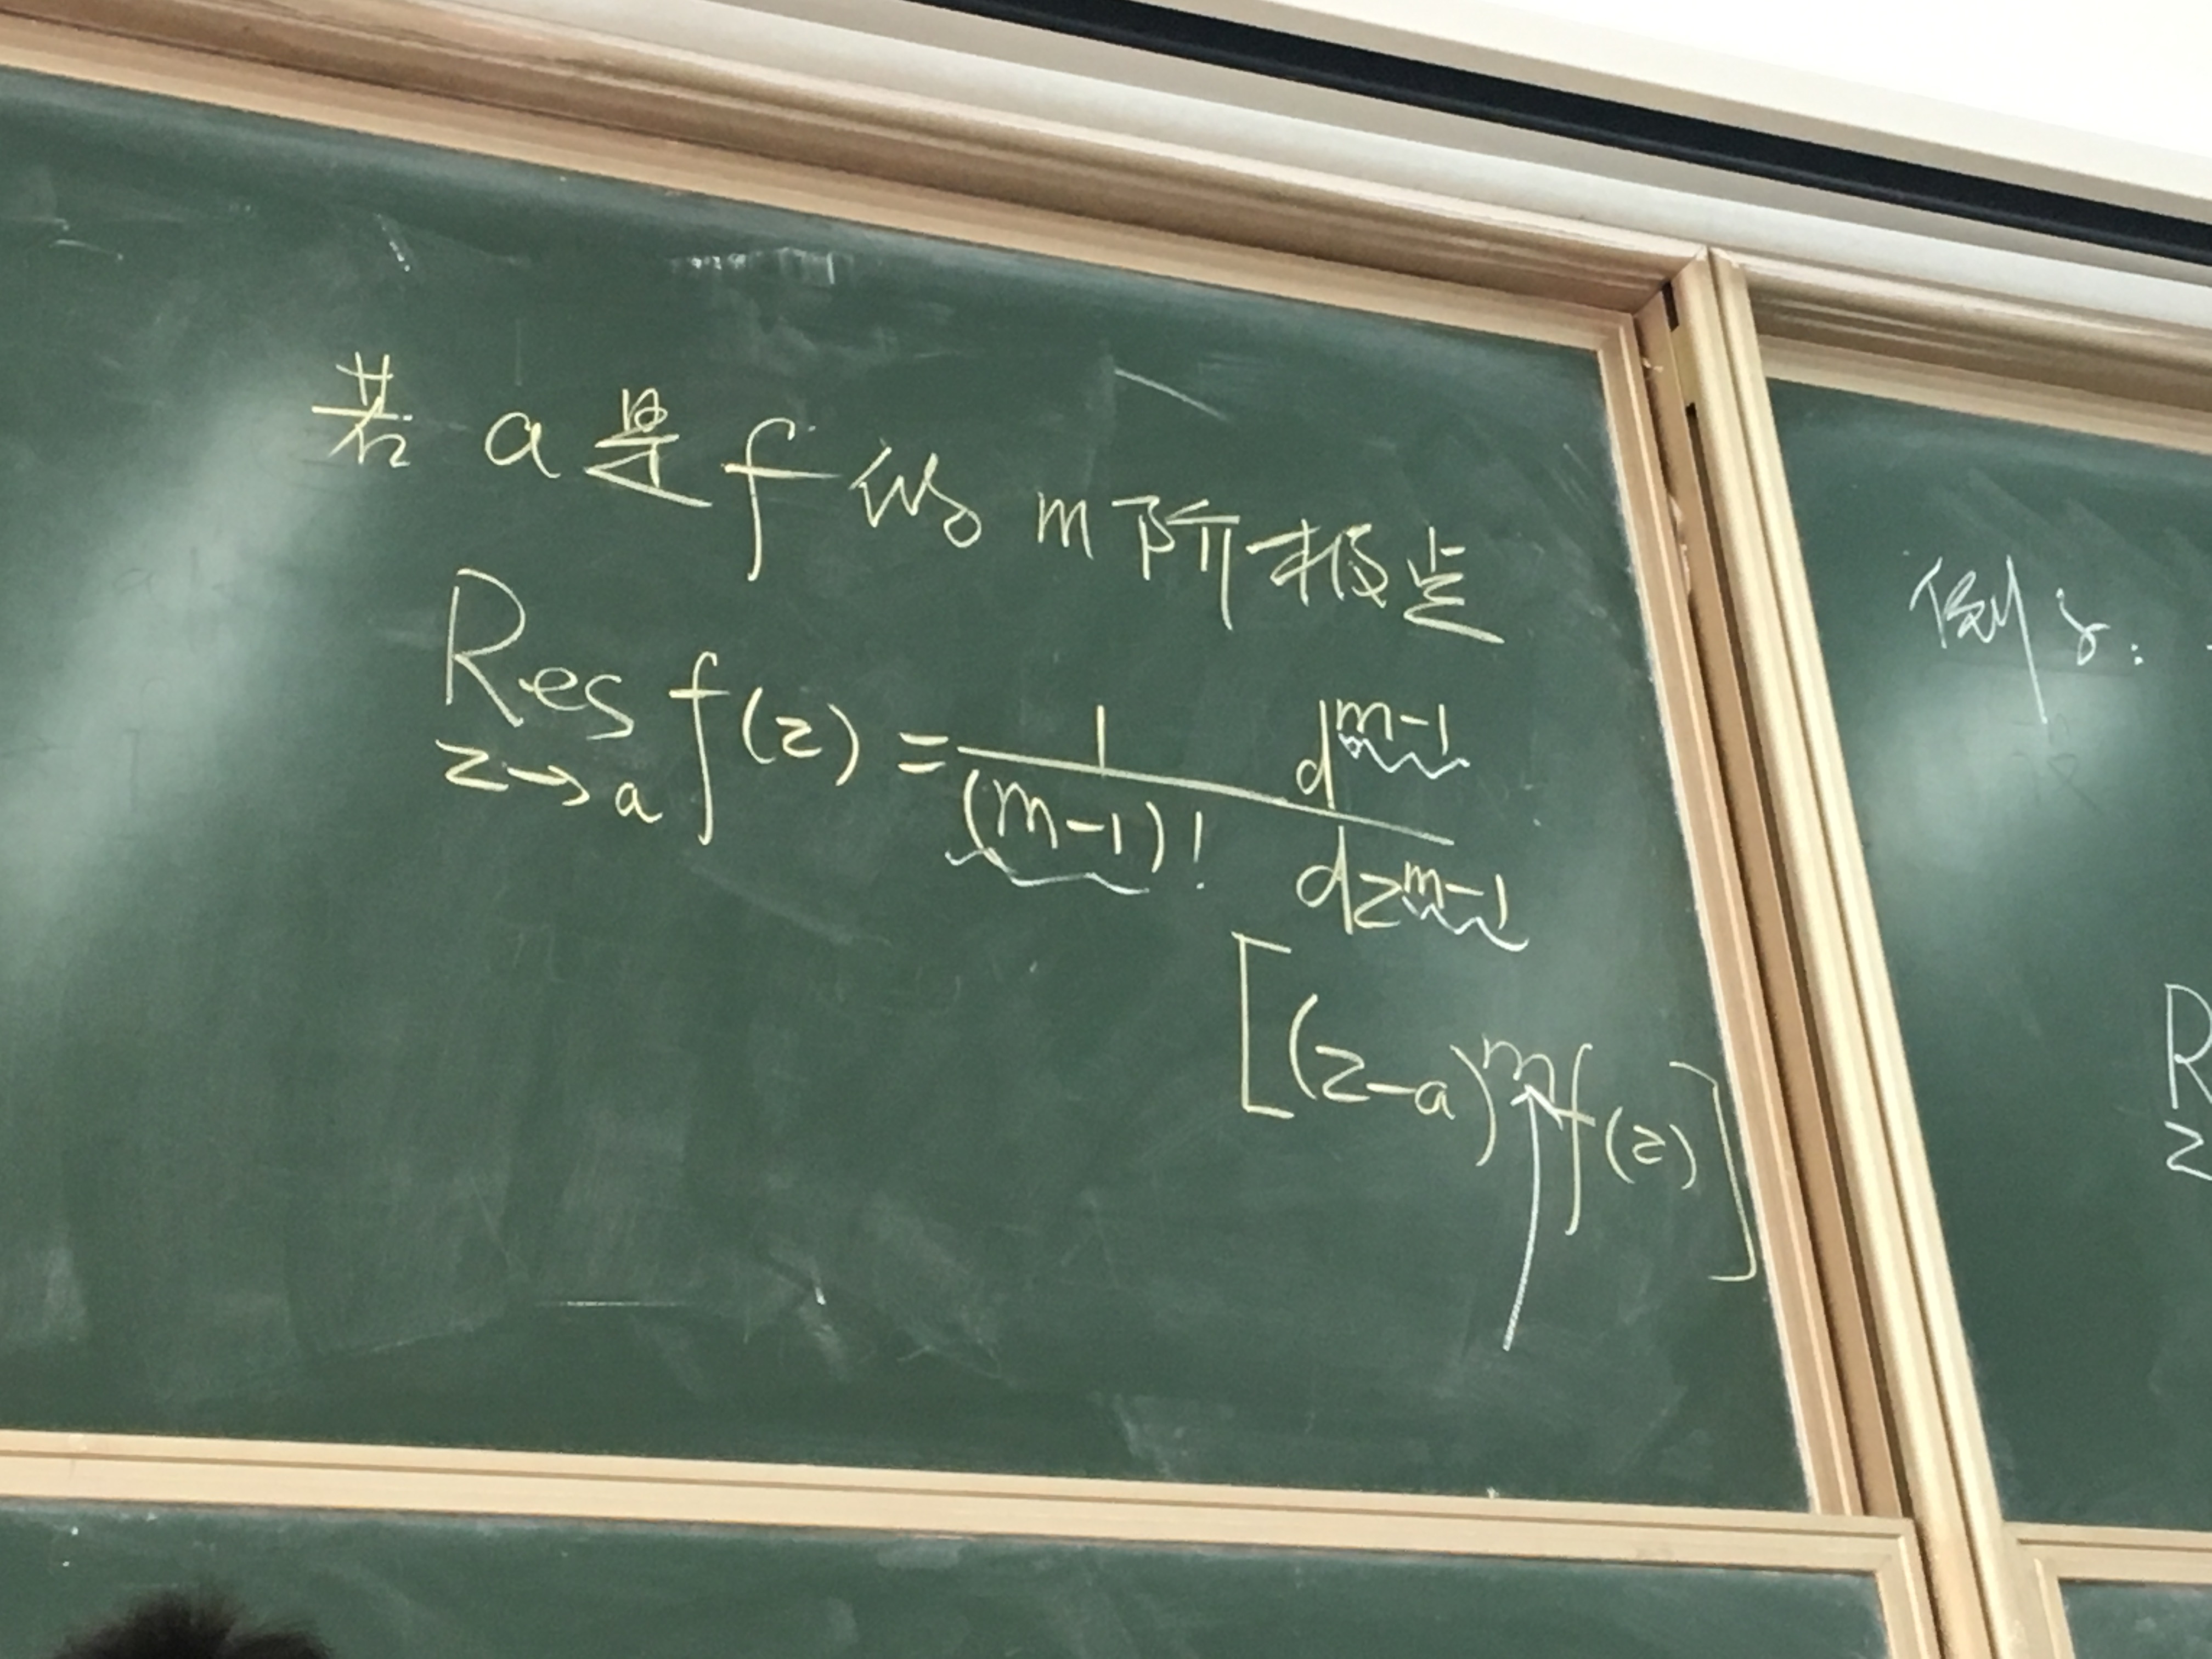 若 a 是 f 的 m 阶极点
Res f(z) = 1/(m-1)! d^{m-1}/dz^{m-1}
z→a
[(z-a)^m f(z)]
R
z